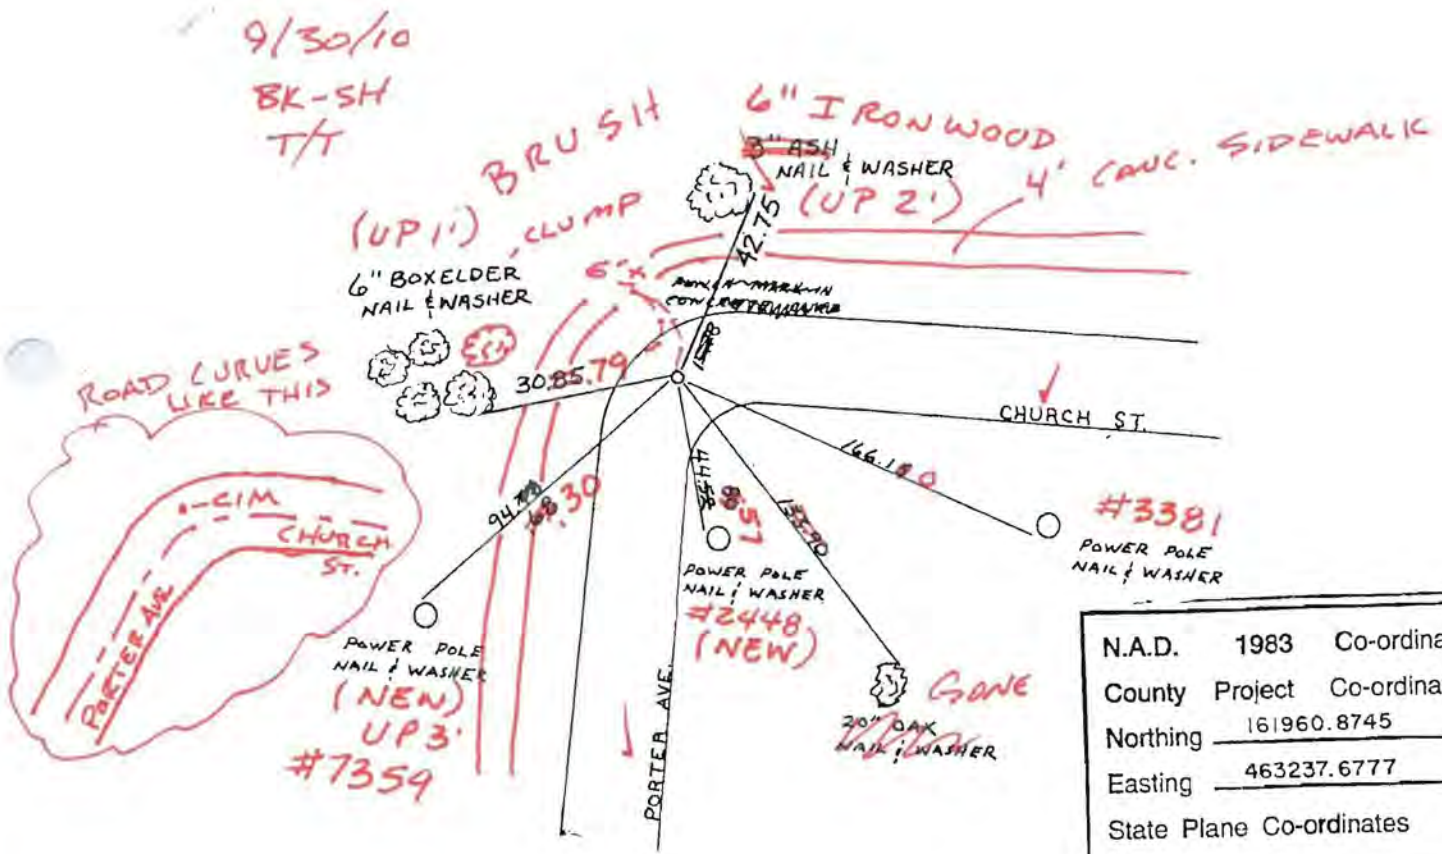 9/30/10
BK-SH
T/T
BRUSH
6" IRONWOOD
3" ASH
NAIL & WASHER
(UP 2')
4' CONC. SIDEWALK
(UP 1')
CLUMP
6" BOXELDER
NAIL & WASHER
42.75
30.85.79
ROAD CURVES
LIKE THIS
CIM
CHURCH
ST.
PORTER AVE
CHURCH ST.
#3381
POWER POLE
NAIL & WASHER
POWER POLE
NAIL & WASHER
#2448
(NEW)
POWER POLE
NAIL & WASHER
(NEW)
UP 3'
#7359
PORTER AVE.
GONE
20" OAK
NAIL & WASHER
N.A.D. 1983 Co-ordina
County Project Co-ordina
Northing 161960.8745
Easting 463237.6777
State Plane Co-ordinates